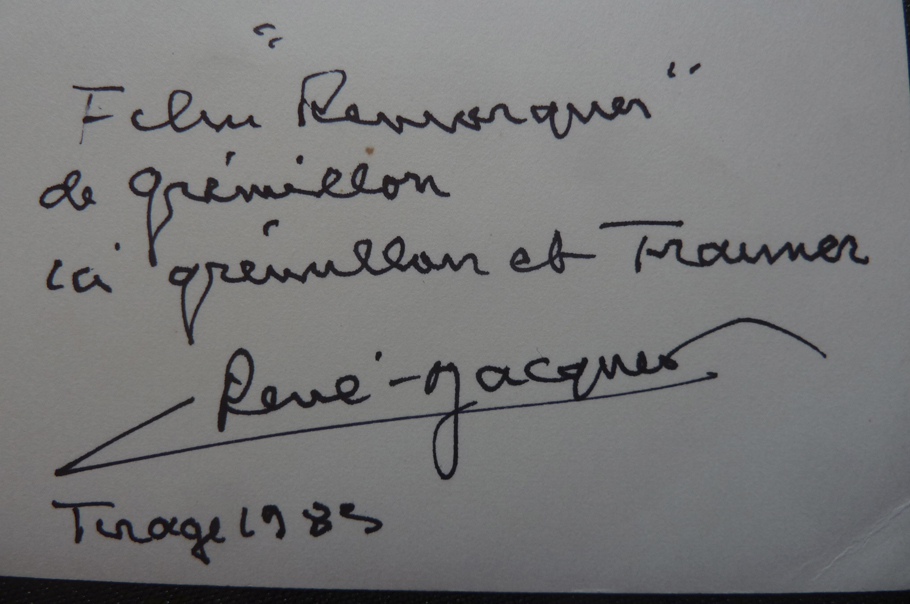 Film "Remorques"
de Grémillon
ici Grémillon et Trauner
René-Jacques
Tirage 1985